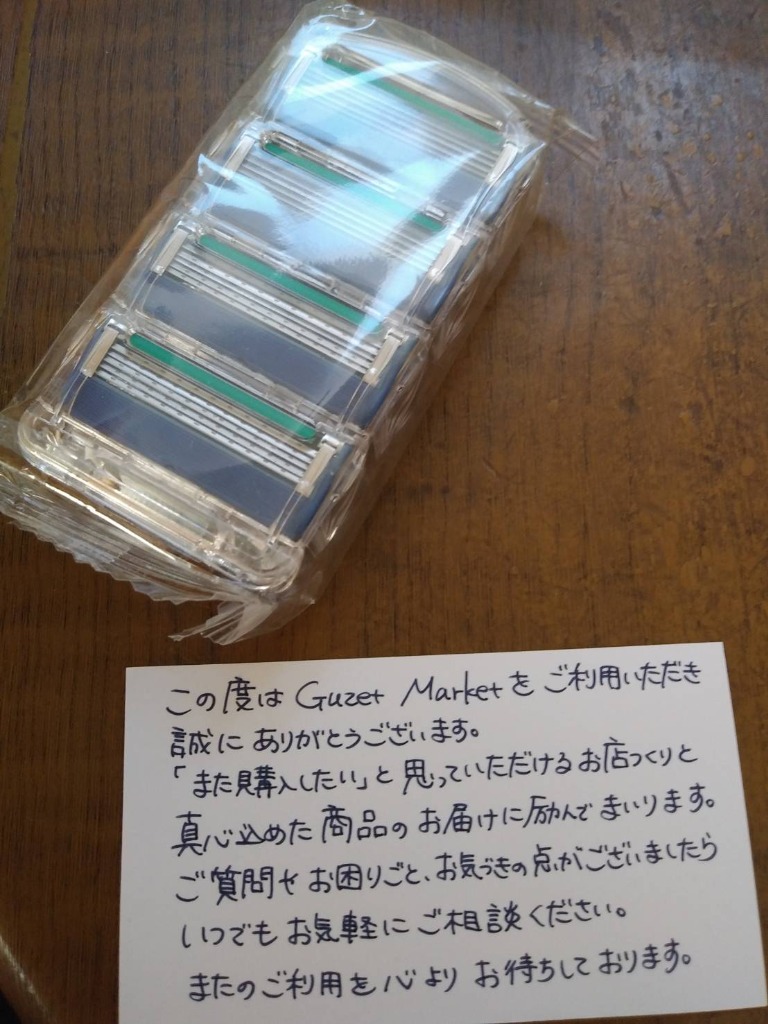 この度は Guzet Marketを ご利用いただき
誠に ありがとうございます。
「また購入したい」と思っていただけるお店づくりと
真心込めた商品の お届けに励んで まいります。
ご質問や お困りごと、お気づきの点がございましたら
いつでも お気軽に ご相談ください。
またのご利用を心より お待ちして おります。